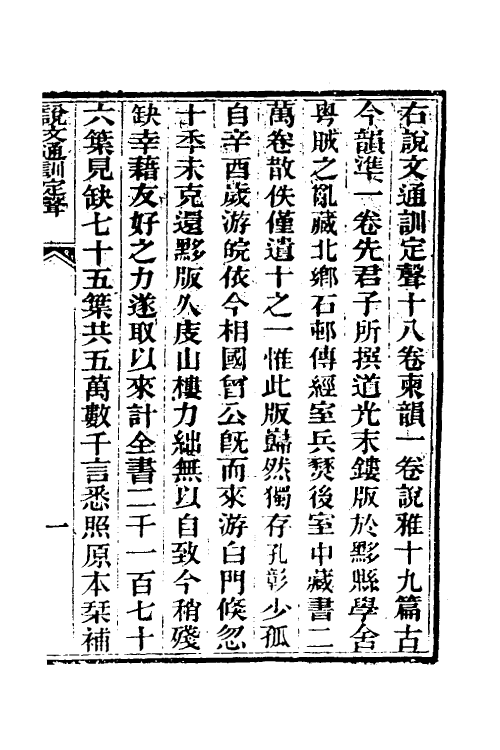 右說文通訓定聲十八卷柬韻一卷說雅十九篇古
今韻準一卷先君子所撰道光末鏤版於黟縣學舍
粵賊之亂藏北鄉石邨傳經室兵燹後室中藏書二
萬卷散佚僅遺十之一惟此版巋然獨存孔彰少孤
自辛酉歲游皖依今相國曾公旣而來游白門倏忽
十秊未克還黟版久庋山樓力絀無以自致今稍殘
缺幸藉友好之力遂取以來計全書二千一百七十
六葉見缺七十五葉共五萬數千言悉照原本栞補
說文通訓定聲
一